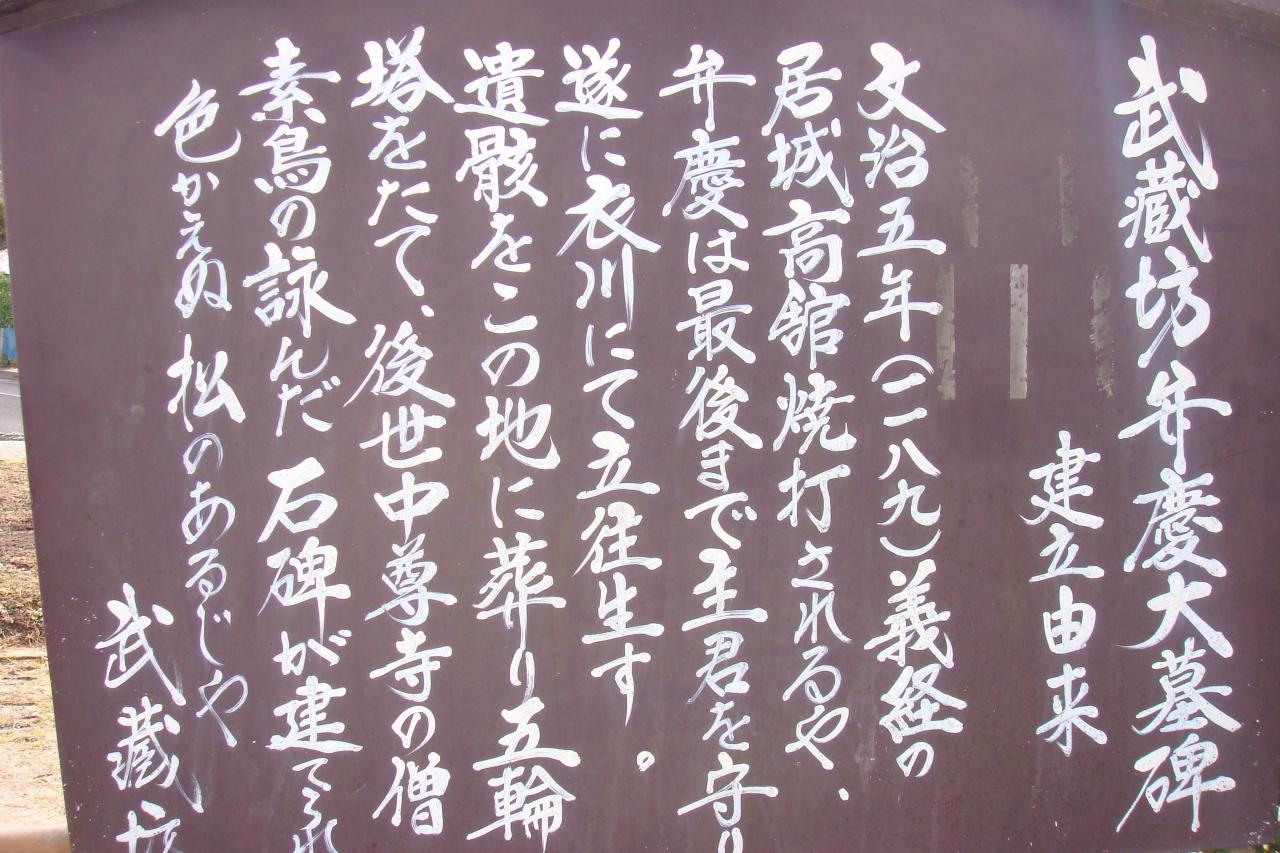 武蔵坊弁慶大墓碑
建立由来
文治五年(一一八九)義経の
居城高舘焼打されるや、
弁慶は最後まで主君を守り
遂に衣川にて立往生す。
遺骸をこの地に葬り五輪
塔をたて、後世中尊寺の僧
素鳥の詠んだ石碑が建てられ
色かえぬ松のあるじや
武蔵坊